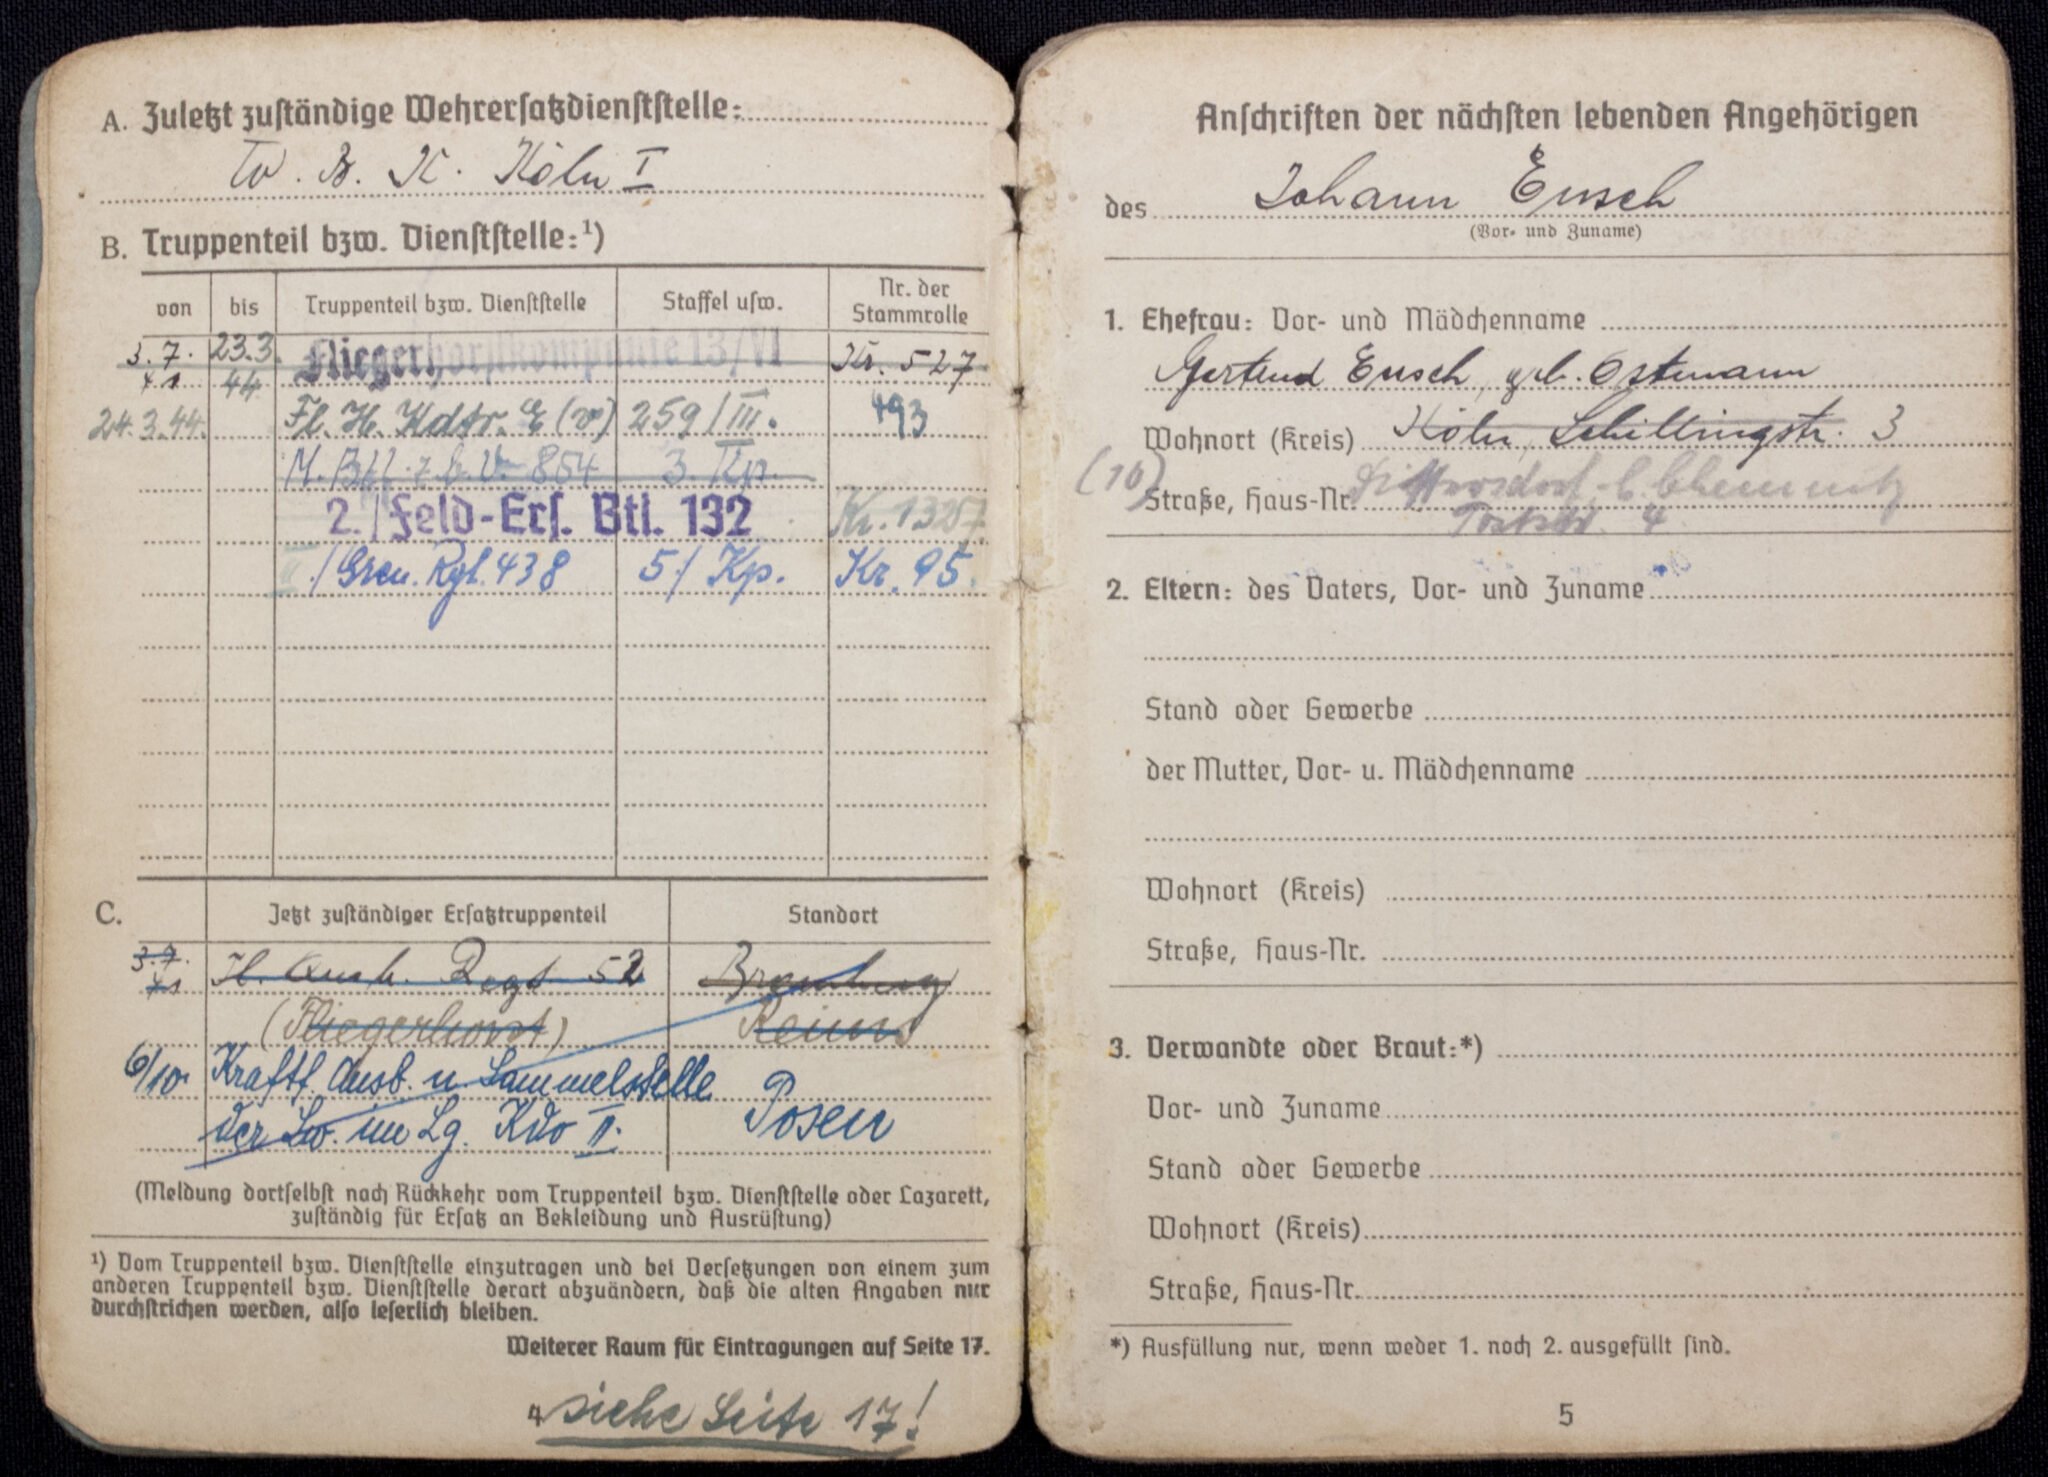 A. Zuletzt zuständige Wehrersatzdienststelle:
W. B. K. Köln I
B. Truppenteil bzw. Dienststelle:¹)
von bis Truppenteil bzw. Dienststelle Staffel usw. Nr. der Stammrolle
3.7. 23.3. Fliegerhorstkompanie 13/VI Kr. 527
41 44
24.3.44. Fl. H. Kdtr. E (v) 259/III. 493
M. Btl. z. b. V. 854 3. Kp.
2./Feld-Ers. Btl. 132 Kr. 1327
II./Gren. Rgt. 438 5/ Kp. Kr. 95.
C. Jetzt zuständiger Ersatztruppenteil Standort
3.7. Fl. Ausb. Regt 52 Bromberg
41
(Fliegerhorst) Reims
6/10. Kraftf. Ausb. u. Sammelstelle
der Lw. im Lg. Kdo II. Posen
(Meldung dortselbst nach Rückkehr vom Truppenteil bzw. Dienststelle oder Lazarett,
zuständig für Ersatz an Bekleidung und Ausrüstung)
¹) Vom Truppenteil bzw. Dienststelle einzutragen und bei Versetzungen von einem zum
anderen Truppenteil bzw. Dienststelle derart abzuändern, daß die alten Angaben nur
durchstrichen werden, also leserlich bleiben.
Weiterer Raum für Eintragungen auf Seite 17.
4 siehe Seite 17!
Anschriften der nächsten lebenden Angehörigen
des Johann Eusch
(Vor- und Zuname)
1. Ehefrau: Vor- und Mädchenname
Gertrud Eusch, geb. Ostmann
Wohnort (Kreis) Köln, Schillingstr. 3
(10) Straße, Haus-Nr. Dittersdorf b. Chemnitz
4
2. Eltern: des Vaters, Vor- und Zuname
Stand oder Gewerbe
der Mutter, Vor- u. Mädchenname
Wohnort (Kreis)
Straße, Haus-Nr.
3. Verwandte oder Braut:*)
Vor- und Zuname
Stand oder Gewerbe
Wohnort (Kreis)
Straße, Haus-Nr.
*) Ausfüllung nur, wenn weder 1. noch 2. ausgefüllt sind.
5